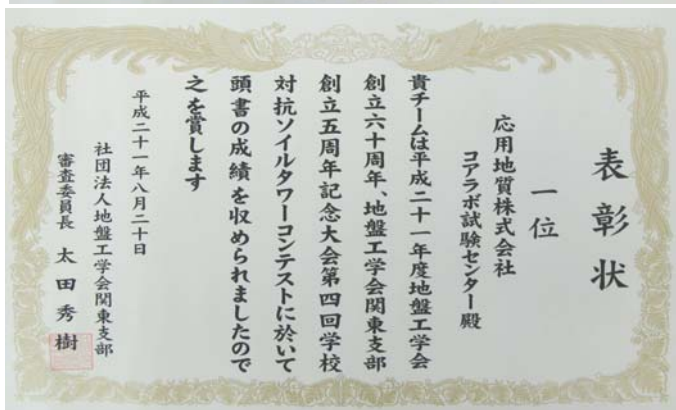 表彰状
一位
応用地質株式会社
コアラボ試験センター殿
貴チームは平成二十一年度地盤工学会
創立六十周年、地盤工学会関東支部
創立五周年記念大会第四回学校
対抗ソイルタワーコンテストに於いて
頭書の成績を収められましたので
之を賞します
平成二十一年八月二十日
社団法人地盤工学会関東支部
審査委員長 太田秀樹